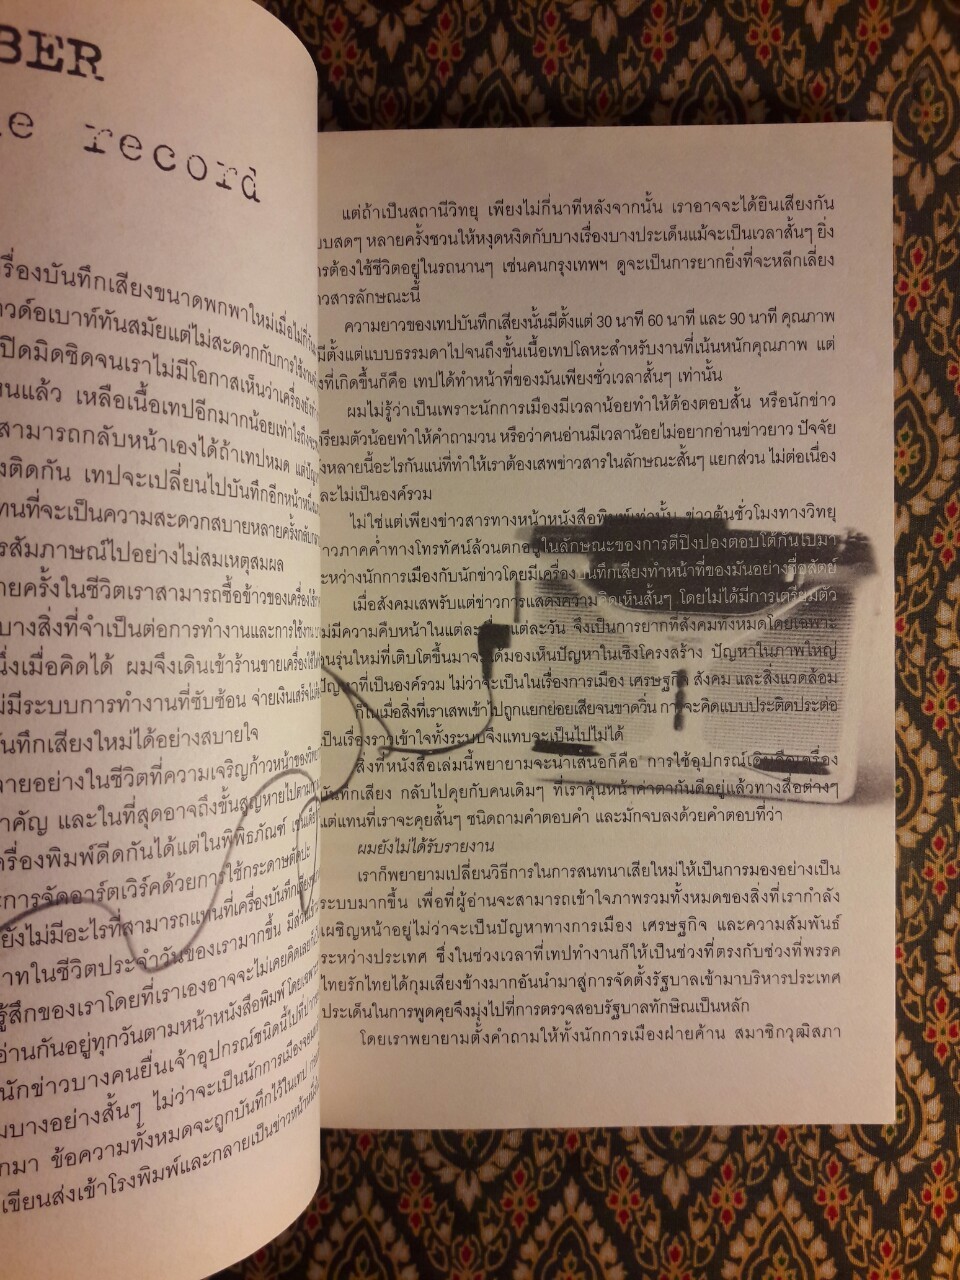 BER
e record
รื่องบันทึกเสียงขนาดพกพาใหม่เมื่อไม่กี่วัน
าวด์อเบาท์ทันสมัยแต่ไม่สะดวกกับการใช้งาน
ปิดมิดชิดจนเราไม่มีโอกาสเห็นว่าเครื่องยัง
หนแล้ว เหลือเนื้อเทปอีกมากน้อยเท่าไรถึง
สามารถกลับหน้าเองได้ถ้าเทปหมด
งติดกัน เทปจะเปลี่ยนไปบันทึกอีกหน้าหนึ่ง
ทนที่จะเป็นความสะดวกสบายหลายครั้งกลับ
รสัมภาษณ์ไปอย่างไม่สมเหตุสมผล
ายครั้งในชีวิตเราสามารถซื้อข้าวของเครื่องใช้
บางสิ่งที่จำเป็นต่อการทำงานและการใช้งาน
นึ่งเมื่อคิดได้ ผมจึงเดินเข้าร้านขายเครื่องใช้ไฟ
ม่มีระบบการทำงานที่ซับซ้อน จ่ายเงินเสร็จ
ันทึกเสียงใหม่ได้อย่างสบายใจ
ลายอย่างในชีวิตที่ความเจริญก้าวหน้าของ
ำคัญ และในที่สุดอาจถึงขั้นสูญหายไปตาม
ครื่องพิมพ์ดีดกันได้แต่ในพิพิธภัณฑ์
ะการจัดอาร์ตเวิร์คด้วยการใช้กระดาษตัดปะ
ยังไม่มีอะไรที่สามารถแทนที่เครื่องบันทึกเสียง
าทในชีวิตประจำวันของเรามากขึ้น
รู้สึกของเราโดยที่เราเองอาจจะไม่เคยคิดเลย
อ่านกันอยู่ทุกวันตามหน้าหนังสือพิมพ์
นักข่าวบางคนยื่นเจ้าอุปกรณ์ชนิดนี้ไปที่
มบางอย่างสั้นๆ ไม่ว่าจะเป็นนักการเมือง
กมา ข้อความทั้งหมดจะถูกบันทึกไว้ในเทป
เขียนส่งเข้าโรงพิมพ์และกลายเป็นข่าวหน้าหนึ่ง
แต่ถ้าเป็นสถานีวิทยุ เพียงไม่กี่นาทีหลังจากนั้น เราอาจจะได้ยินเสียงกัน
บบสดๆ หลายครั้งชวนให้หงุดหงิดกับบางเรื่องบางประเด็นแม้จะเป็นเวลาสั้นๆ ยิ่ง
ารต้องใช้ชีวิตอยู่ในรถนานๆ เช่นคนกรุงเทพฯ ดูจะเป็นการยากยิ่งที่จะหลีกเลี่ยง
่าวสารลักษณะนี้
ความยาวของเทปบันทึกเสียงนั้นมีตั้งแต่ 30 นาที 60 นาที และ 90 นาที คุณภาพ
มีตั้งแต่แบบธรรมดาไปจนถึงขั้นเนื้อเทปโลหะสำหรับงานที่เน้นหนักคุณภาพ แต่
ิ่งที่เกิดขึ้นก็คือ เทปได้ทำหน้าที่ของมันเพียงชั่วเวลาสั้นๆ เท่านั้น
ผมไม่รู้ว่าเป็นเพราะนักการเมืองมีเวลาน้อยทำให้ต้องตอบสั้น หรือนักข่าว
ตรียมตัวน้อยทำให้คำถามวน หรือว่าคนอ่านมีเวลาน้อยไม่อยากอ่านข่าวยาว ปัจจัย
ั้งหลายนี้อะไรกันแน่ที่ทำให้เราต้องเสพข่าวสารในลักษณะสั้นๆ แยกส่วน ไม่ต่อเนื่อง
ละไม่เป็นองค์รวม
ไม่ใช่แต่เพียงข่าวสารทางหน้าหนังสือพิมพ์เท่านั้น ข่าวต้นชั่วโมงทางวิทยุ
่าวภาคค่ำทางโทรทัศน์ล้วนตกอยู่ในลักษณะของการตีปิงปองตอบโต้กันไปมา
ะหว่างนักการเมืองกับนักข่าวโดยมีเครื่องบันทึกเสียงทำหน้าที่ของมันอย่างซื่อสัตย์
เมื่อสังคมเสพรับแต่ข่าวการแสดงความคิดเห็นสั้นๆ โดยไม่ได้มีการเตรียมตัว
ม่มีความคืบหน้าในแต่ละ แต่ละวัน จึงเป็นการยากที่สังคมทั้งหมดโดยเฉพาะ
นรุ่นใหม่ที่เติบโตขึ้นมาจะได้มองเห็นปัญหาในเชิงโครงสร้าง ปัญหาในภาพใหญ่
ปัญหาที่เป็นองค์รวม ไม่ว่าจะเป็นในเรื่องการเมือง เศรษฐกิจ สังคม และสิ่งแวดล้อม
ก็ในเมื่อสิ่งที่เราเสพเข้าไปถูกแยกย่อยเสียจนขาดวิ่น การจะคิดแบบประติดประต่อ
เป็นเรื่องราวเข้าใจทั้งระบบจึงแทบจะเป็นไปไม่ได้
สิ่งที่หนังสือเล่มนี้พยายามจะนำเสนอก็คือ การใช้อุปกรณ์เดิมคือเครื่อง
บันทึกเสียง กลับไปคุยกับคนเดิมๆ ที่เราคุ้นหน้าค่าตากันดีอยู่แล้วทางสื่อต่างๆ
แต่แทนที่เราจะคุยสั้นๆ ชนิดถามคำตอบคำ และมักจบลงด้วยคำตอบที่ว่า
ผมยังไม่ได้รับรายงาน
เราก็พยายามเปลี่ยนวิธีการในการสนทนาเสียใหม่ให้เป็นการมองอย่างเป็น
ระบบมากขึ้น เพื่อที่ผู้อ่านจะสามารถเข้าใจภาพรวมทั้งหมดของสิ่งที่เรากำลัง
เผชิญหน้าอยู่ไม่ว่าจะเป็นปัญหาทางการเมือง เศรษฐกิจ และความสัมพันธ์
ระหว่างประเทศ ซึ่งในช่วงเวลาที่เทปทำงานก็ให้เป็นช่วงที่ตรงกับช่วงที่พรรค
ไทยรักไทยได้กุมเสียงข้างมากอันนำมาสู่การจัดตั้งรัฐบาลเข้ามาบริหารประเทศ
ประเด็นในการพูดคุยจึงมุ่งไปที่การตรวจสอบรัฐบาลทักษิณเป็นหลัก
โดยเราพยายามตั้งคำถามให้ทั้งนักการเมืองฝ่ายค้าน สมาชิกวุฒิสภา